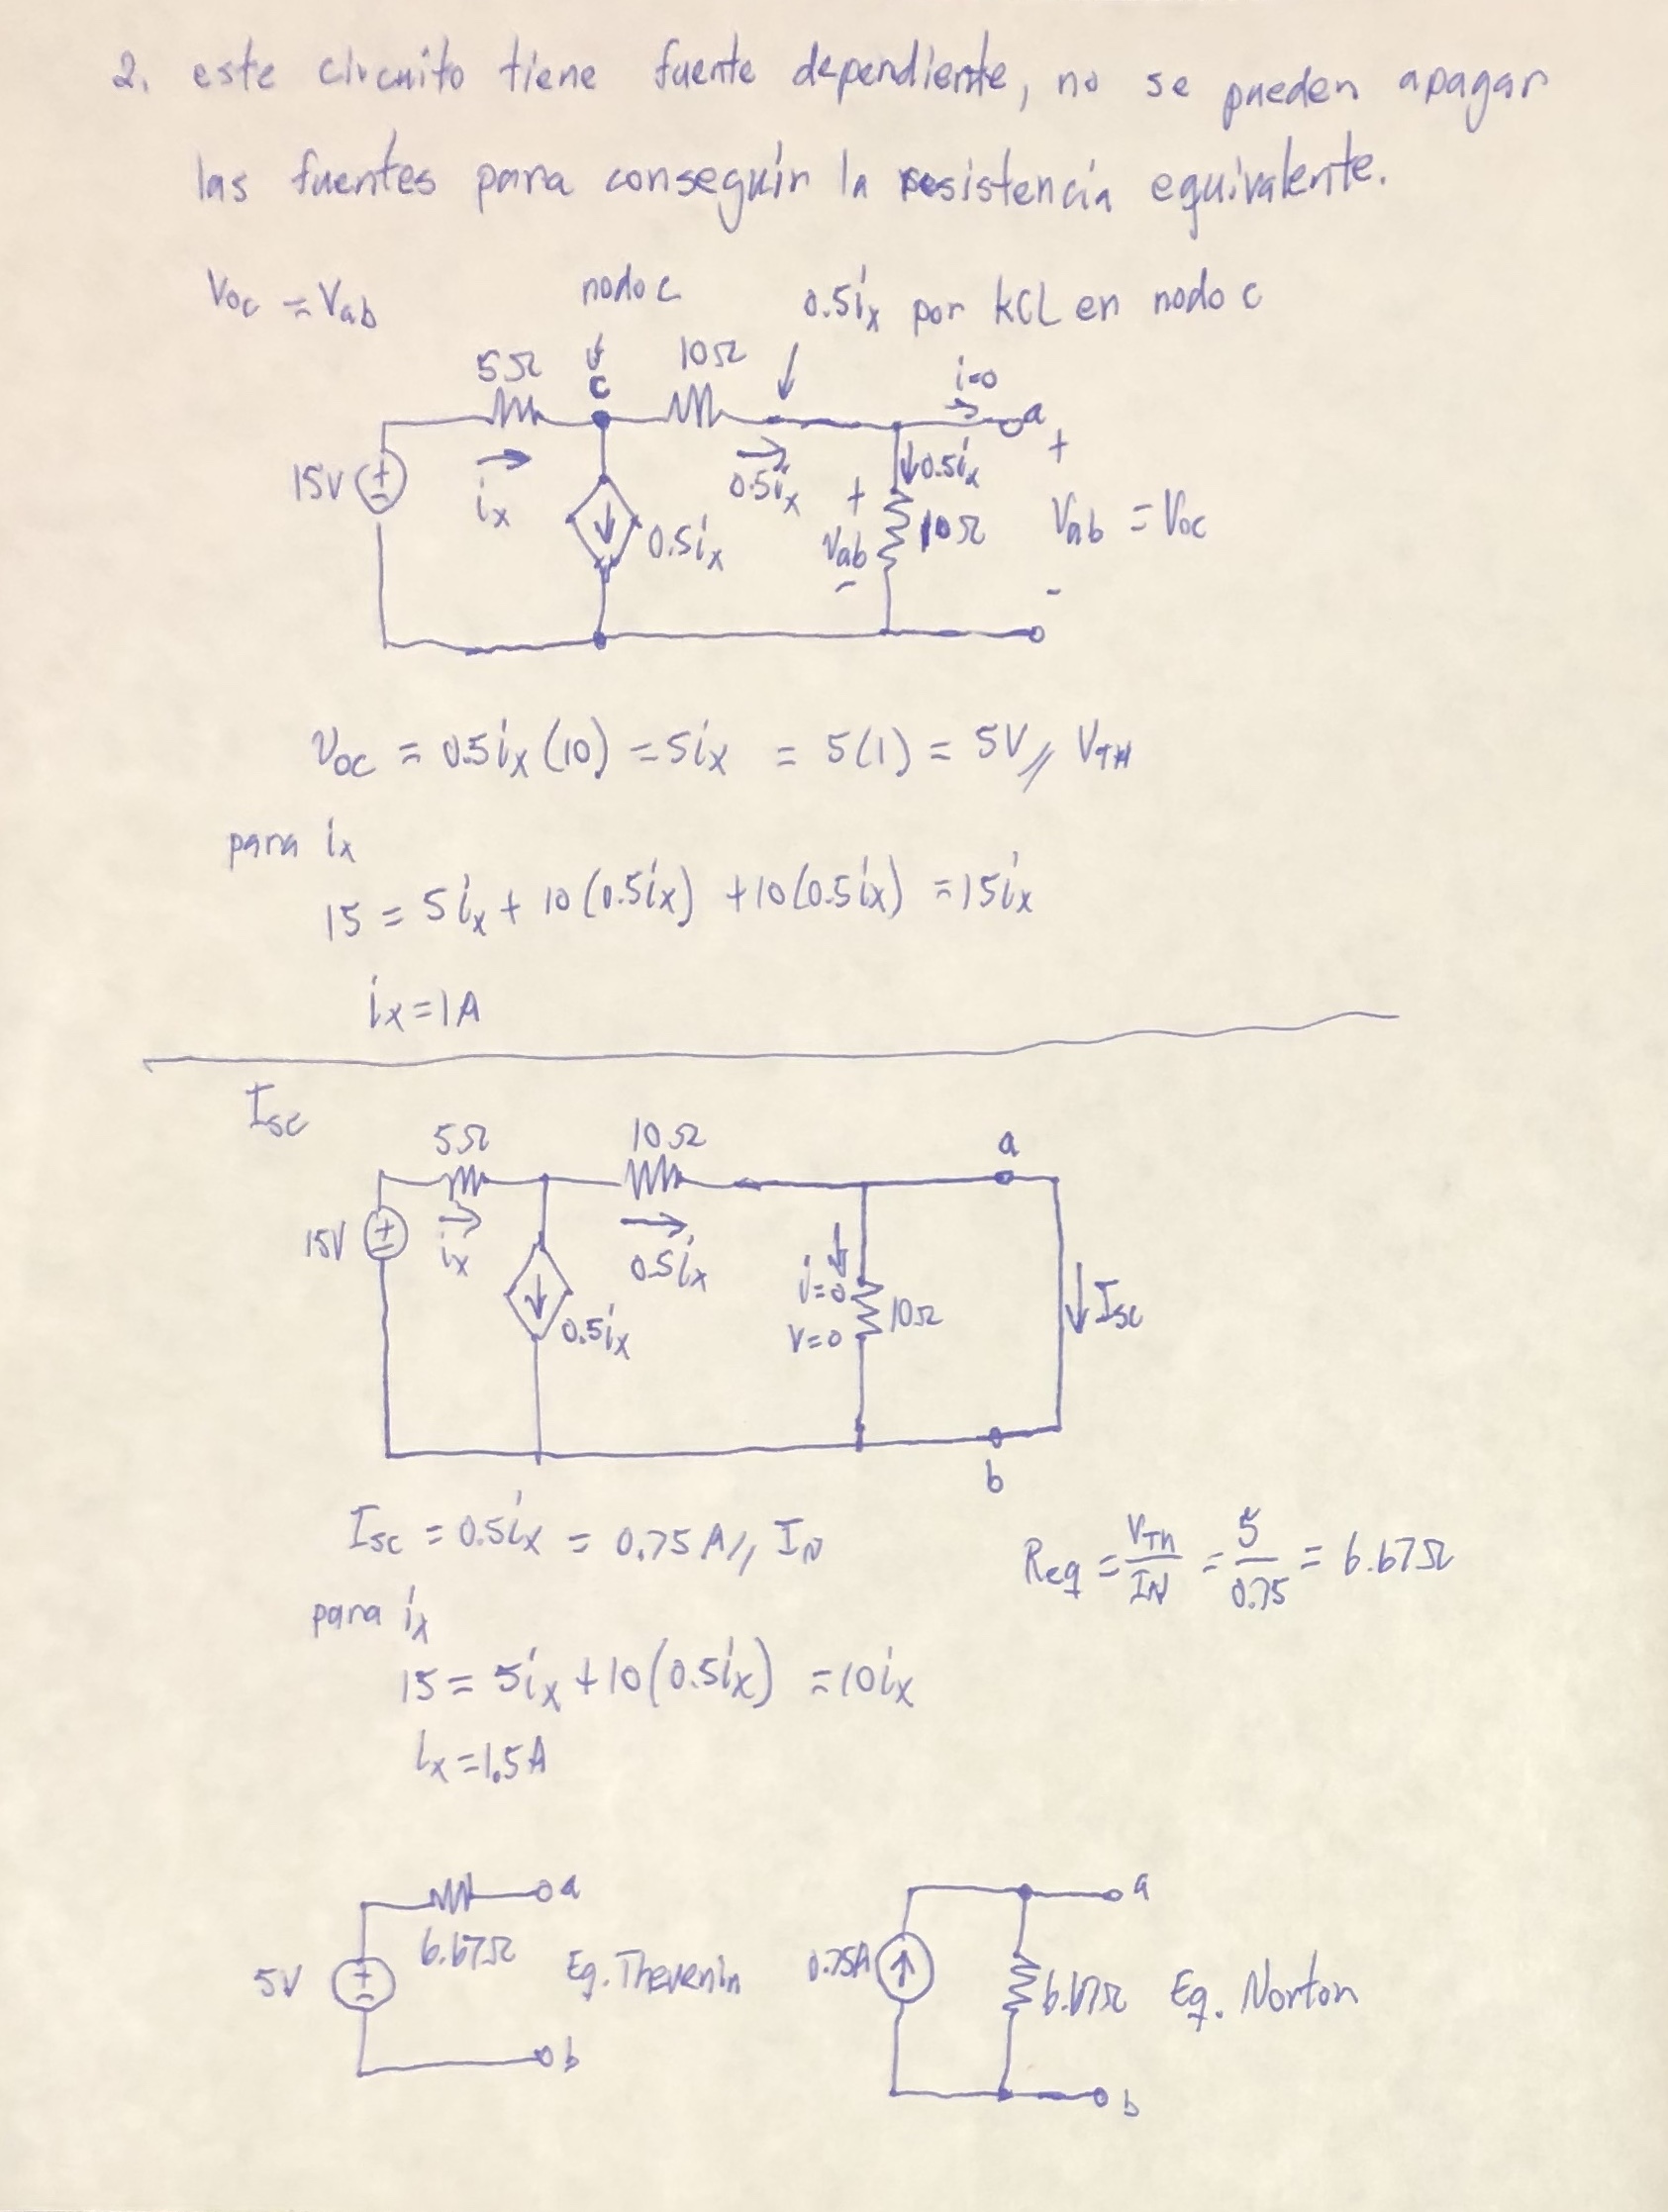 2. este circuito tiene fuente dependiente, no se pueden apagar
las fuentes para conseguir la resistencia equivalente.
Voc = Vab
nodo c
0.5ix por KCL en nodo c
5Ω
c
10Ω
i=0
a
+
15V
ix
0.5ix
0.5ix
0.5ix
+
Vab
-
10Ω
Vab = Voc
-
Voc = 0.5ix(10) = 5ix = 5(1) = 5V // VTH
para ix
15 = 5ix + 10(0.5ix) + 10(0.5ix) = 15ix
ix = 1A
Isc
5Ω
10Ω
a
15V
ix
0.5ix
0.5ix
i=0
V=0
10Ω
Isc
b
Isc = 0.5ix = 0.75A // IN
Req = VTH/IN = 5/0.75 = 6.67Ω
para ix
15 = 5ix + 10(0.5ix) = 10ix
ix = 1.5A
a
6.67Ω
5V
Eq. Thevenin
b
a
0.75A
6.67Ω
Eq. Norton
b